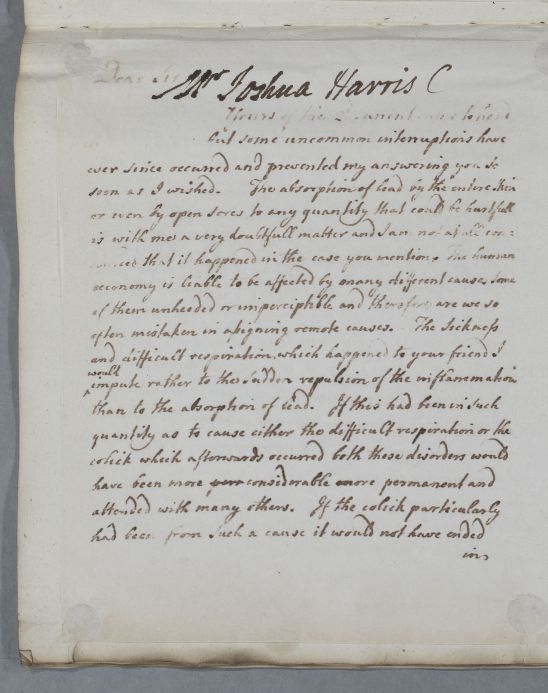 Dear Sir
Mr Joshua Harris C
Yours of the 2. came to hand
but some uncommon interruptions have
ever since occurred and prevented my answering you so
soon as I wished. The absorption of lead by the entire skin
or even by open sores to any quantity that could be hurtfull
is with me a very doubtfull matter and I am not at all con:
vinced that it happened in the case you mention. The human
oeconomy is liable to be affected by many different causes some
of them unheeded or imperceptible and therefore are we so
often mistaken in assigning remote causes. The Sickness
and difficult respiration, which happened to your friend I
would
^ impute rather to the sudden repulsion of the inflammation
than to the absorption of lead. If this had been in such
quantity as to cause either the difficult respiration or the
colick which afterwards occurred both these disorders would
have been more considerable more permanent and
attended with many others. If the colick particularly
had been from such a cause it would not have ended
in